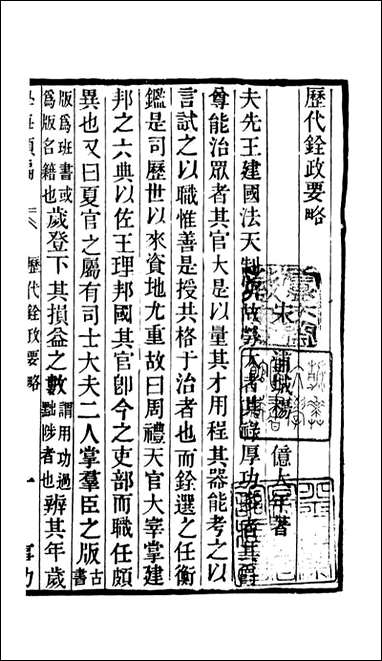 歷代銓政要略
宋 浦城楊 億大年著
夫先王建國法天制故勞大者其祿厚功者其爵
尊能治眾者其官大是以量其才用程其器能考之以
言試之以職惟善是授共格于治者也而銓選之任衡
鑑是司歷世以來資地尤重故曰周禮天官大宰掌建
邦之六典以佐王理邦國其官卽今之吏部而職任頗
異也又曰夏官之屬有司士大夫二人掌羣臣之版古書
版爲班書或爲版名籍也歲登下其損益之數謂用功過黜陟者也辨其年歲
歷代銓政要略 一